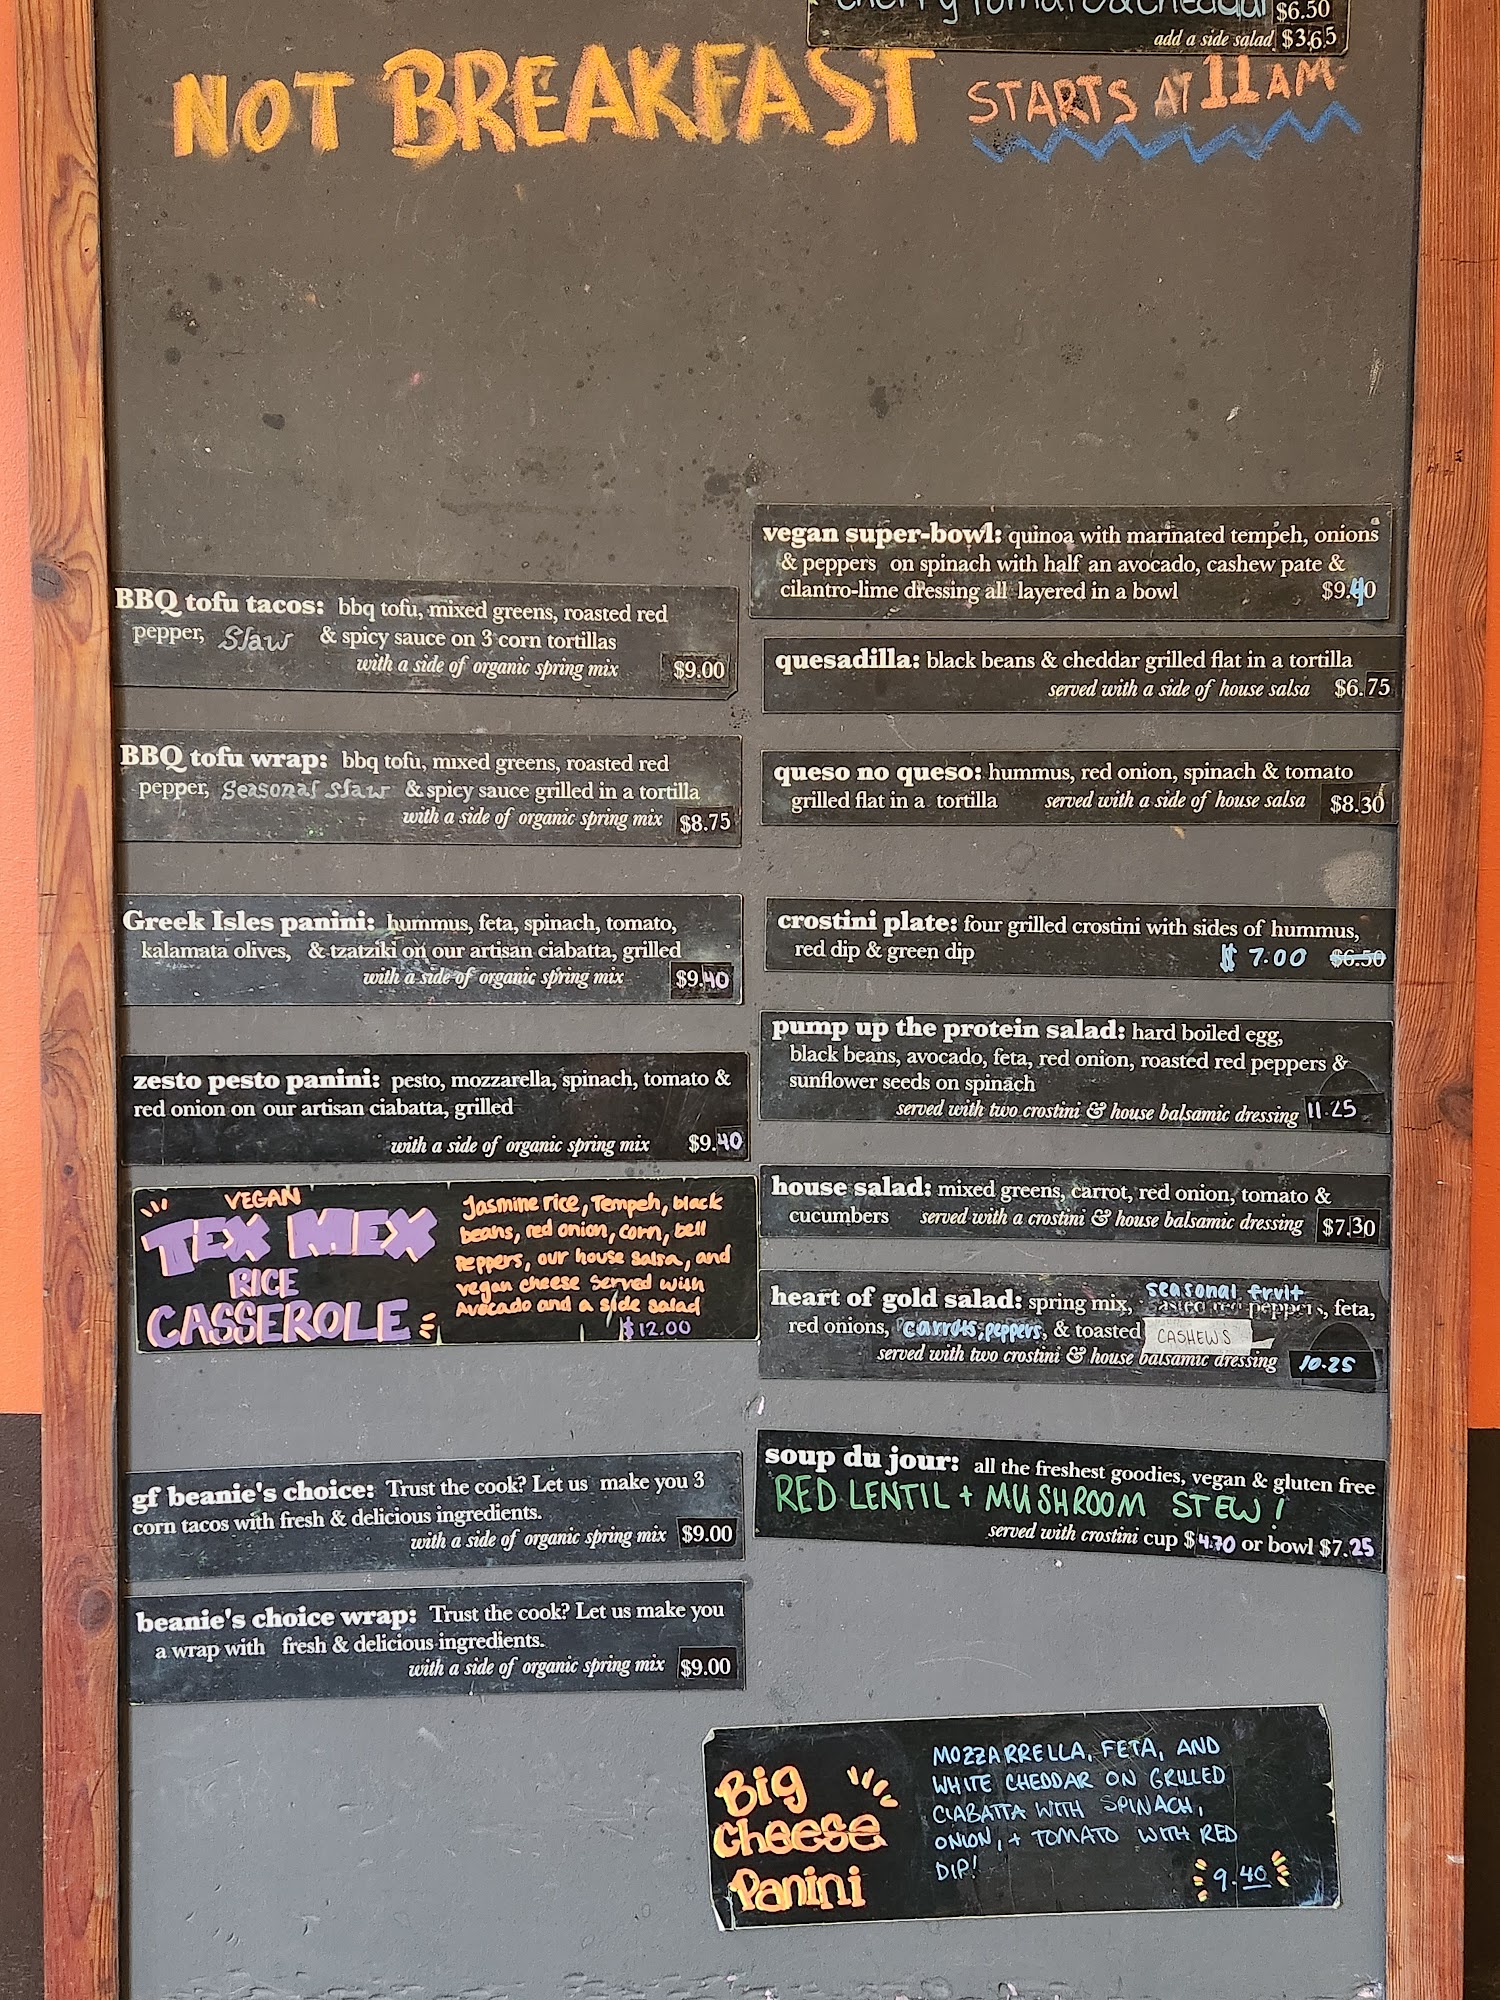 cherry tomato & cheddar $6.50
add a side salad $3.65
NOT BREAKFAST STARTS AT 11 AM
BBQ tofu tacos: bbq tofu, mixed greens, roasted red
pepper, Slaw & spicy sauce on 3 corn tortillas
with a side of organic spring mix $9.00
BBQ tofu wrap: bbq tofu, mixed greens, roasted red
pepper, Seasonal slaw & spicy sauce grilled in a tortilla
with a side of organic spring mix $8.75
Greek Isles panini: hummus, feta, spinach, tomato,
kalamata olives, & tzatziki on our artisan ciabatta, grilled
with a side of organic spring mix $9.40
zesto pesto panini: pesto, mozzarella, spinach, tomato &
red onion on our artisan ciabatta, grilled
with a side of organic spring mix $9.40
VEGAN
TEX MEX
RICE
CASSEROLE
Jasmine rice, Tempeh, black
beans, red onion, corn, bell
peppers, our house salsa, and
vegan cheese served with
Avocado and a side salad
$12.00
gf beanie's choice: Trust the cook? Let us make you 3
corn tacos with fresh & delicious ingredients.
with a side of organic spring mix $9.00
beanie's choice wrap: Trust the cook? Let us make you
a wrap with fresh & delicious ingredients.
with a side of organic spring mix $9.00
vegan super-bowl: quinoa with marinated tempeh, onions
& peppers on spinach with half an avocado, cashew pate &
cilantro-lime dressing all layered in a bowl $9.40
quesadilla: black beans & cheddar grilled flat in a tortilla
served with a side of house salsa $6.75
queso no queso: hummus, red onion, spinach & tomato
grilled flat in a tortilla served with a side of house salsa $8.30
crostini plate: four grilled crostini with sides of hummus,
red dip & green dip $7.00 $6.50
pump up the protein salad: hard boiled egg,
black beans, avocado, feta, red onion, roasted red peppers &
sunflower seeds on spinach
served with two crostini & house balsamic dressing 11.25
house salad: mixed greens, carrot, red onion, tomato &
cucumbers served with a crostini & house balsamic dressing $7.30
seasonal fruit
heart of gold salad: spring mix, peppers, feta,
red onions, carrots, peppers, & toasted CASHEWS
served with two crostini & house balsamic dressing 10.25
soup du jour: all the freshest goodies, vegan & gluten free
RED LENTIL + MUSHROOM STEW!
served with crostini cup $4.70 or bowl $7.25
Big
Cheese
Panini
MOZZARRELLA, FETA, AND
WHITE CHEDDAR ON GRILLED
CIABATTA WITH SPINACH,
ONION, + TOMATO WITH RED
DIP!
9.40